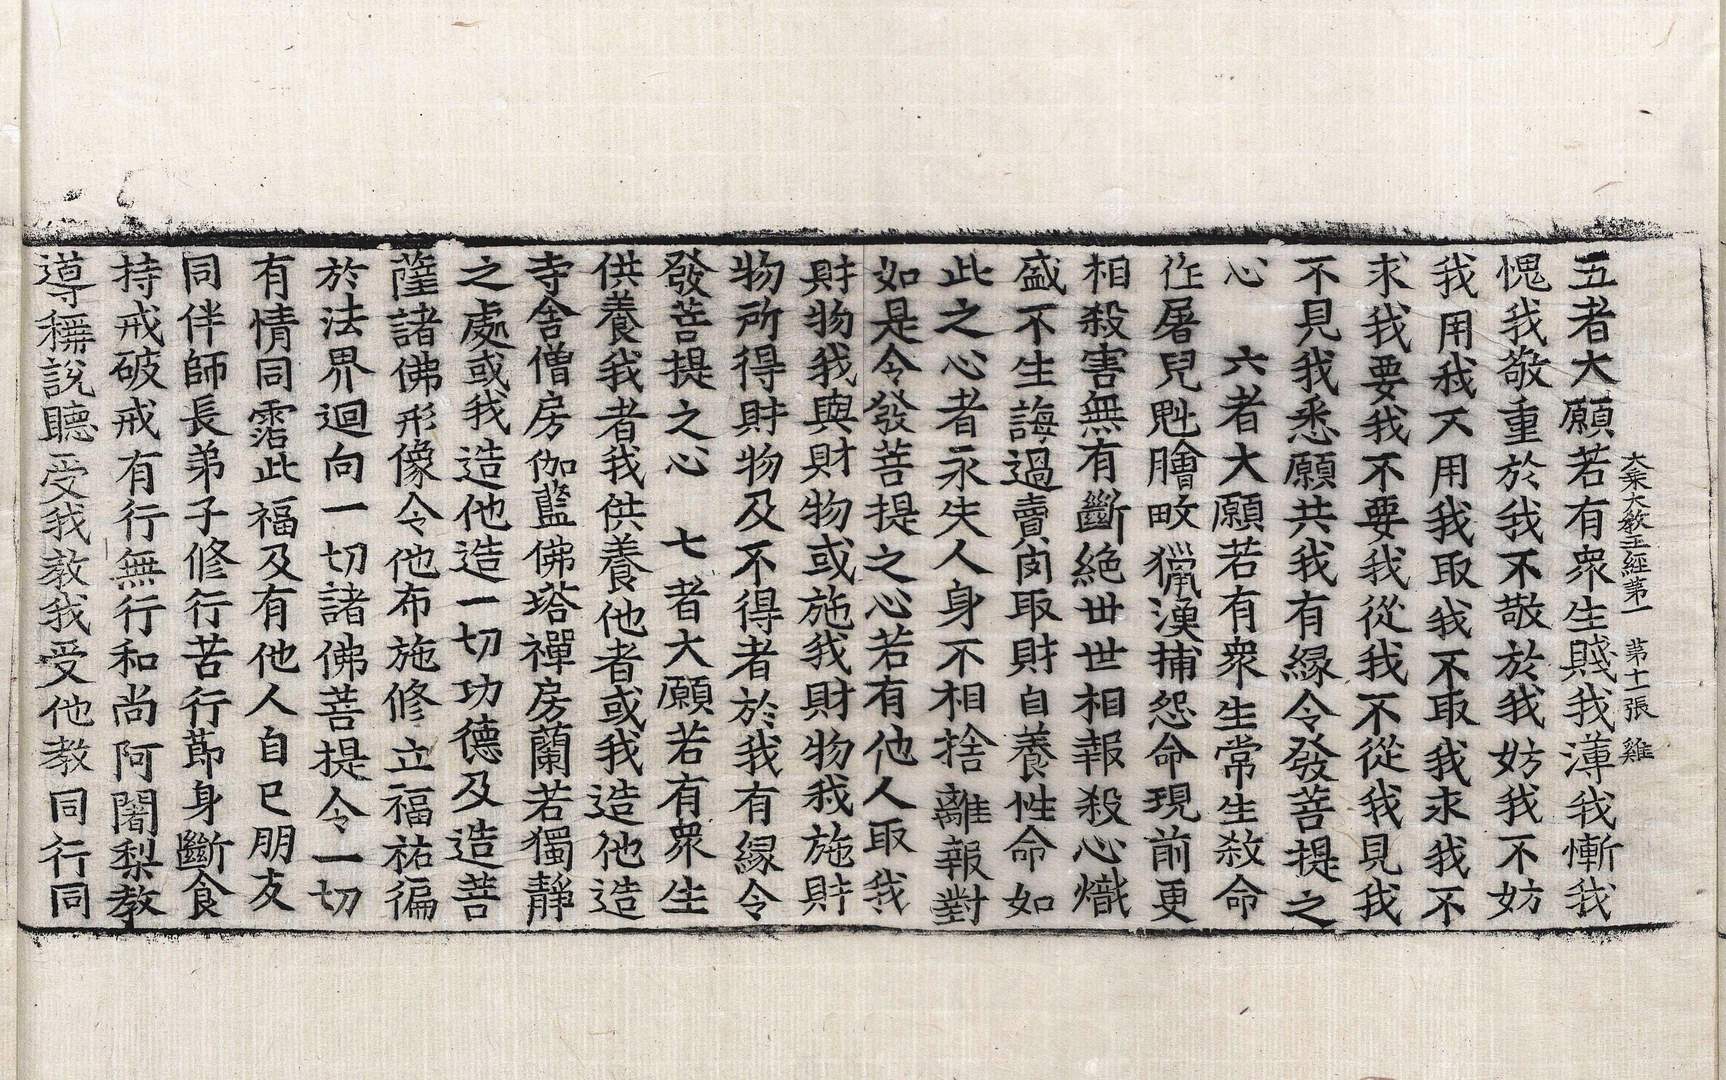 大乘大教王經第一　第十一張　雞
五者大願若有衆生賤我薄我慚我
愧我敬重於我不敬於我妨我不妨
我用我不用我取我不取我求我不
求我要我不要我從我不從我見我
不見我悉願共我有緣令發菩提之
心　六者大願若有衆生常生殺命
作屠兒魁膾畋獵漁捕怨命現前更
相殺害無有斷絕世世相報殺心熾
盛不生誨過賣肉取財自養性命如
此之心者永失人身不相捨離報對
如是令發菩提之心若有他人取我
財物我與財物或施我財物我施財
物所得財物及不得者於我有緣令
發菩提之心　七者大願若有衆生
供養我者我供養他者或我造他造
寺舍僧房伽藍佛塔禪房蘭若獨靜
之處或我造他造一切功德及造菩
薩諸佛形像令他布施修立福祐徧
於法界迴向一切諸佛菩提令一切
有情同霑此福及有他人自己朋友
同伴師長弟子修行苦行節身斷食
持戒破戒有行無行和尚阿闍梨教
導稱說聽受我教我受他教同行同